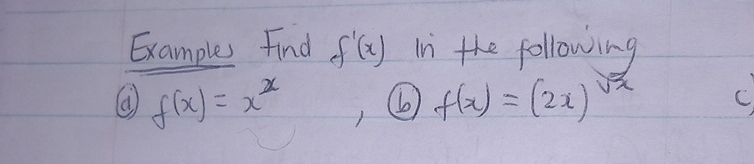 Examples Find f'(x) in the following
(a) f(x) = x^x , (b) f(x) = (2x)^√x c)